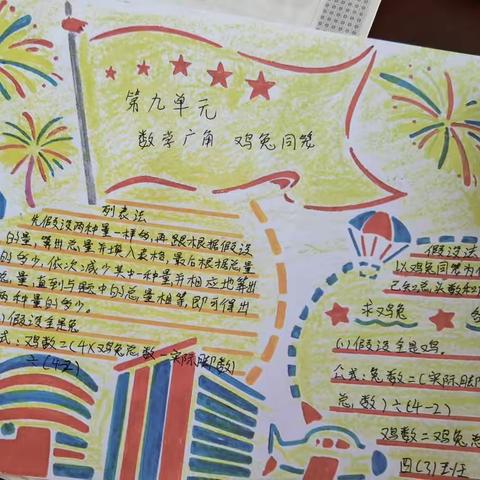 第九单元
数学广角 鸡兔同笼
列表法
先假设两种量一样多,再跟根据假设
的量,算出总量并填入表格,最后根据总量
的多少,依次减少其中一种量并相应地算出
总量,直到与题中的总量相等,即可得出
两种量的多少。
假设全是兔
式:鸡数=(4×鸡兔总数-实际脚数)
÷(4-2)
假设法
以鸡兔同笼为
已知总头数和
求鸡兔
(1)假设全是鸡。
公式:兔数=(实际脚
总数)÷(4-2)
鸡数=鸡兔总
四(3)班